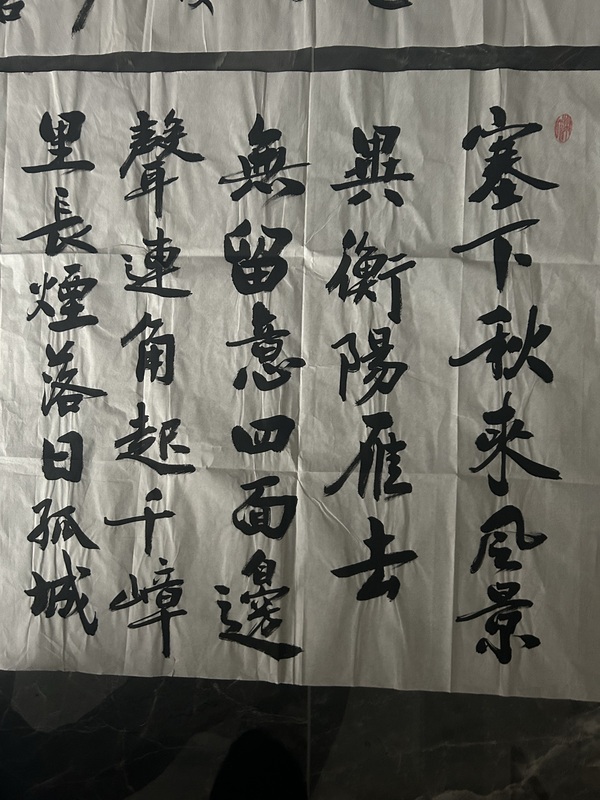 塞下秋来風景
異衡陽雁去
無留意四面邊
聲連角起千嶂
里長煙落日孤城